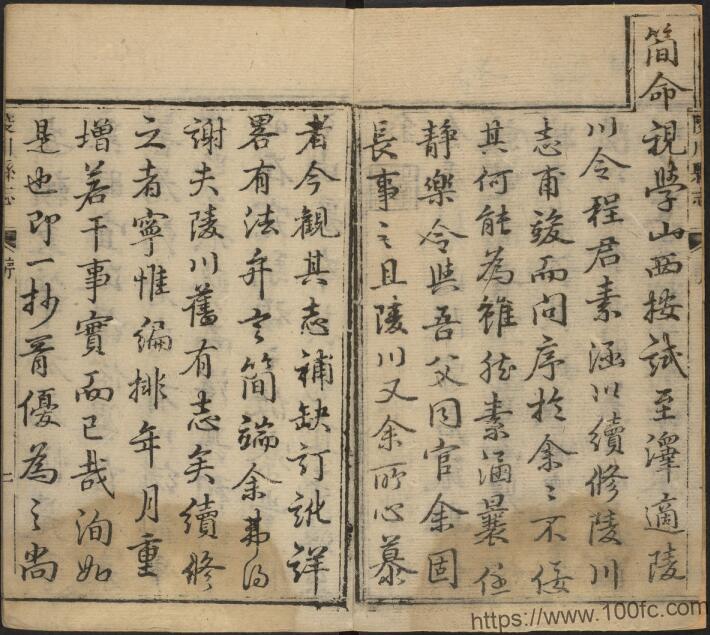 簡命視學山西按試至澤適陵
川令程君素涵以續修陵川
志甫竣而問序於余〻不佞
其何能為雖然素涵曩任
靜樂令與吾父同官余固
長事之且陵川又余所心慕
者今觀其志補缺訂訛詳
畧有法弁言簡端余弗得
謝夫陵川舊有志矣續修
之者寧惟編排年月重
增若干事實而已哉洵如
是也即一抄胥優為之尚
陵川縣志
序
陵川縣志
https://www.100fc.com